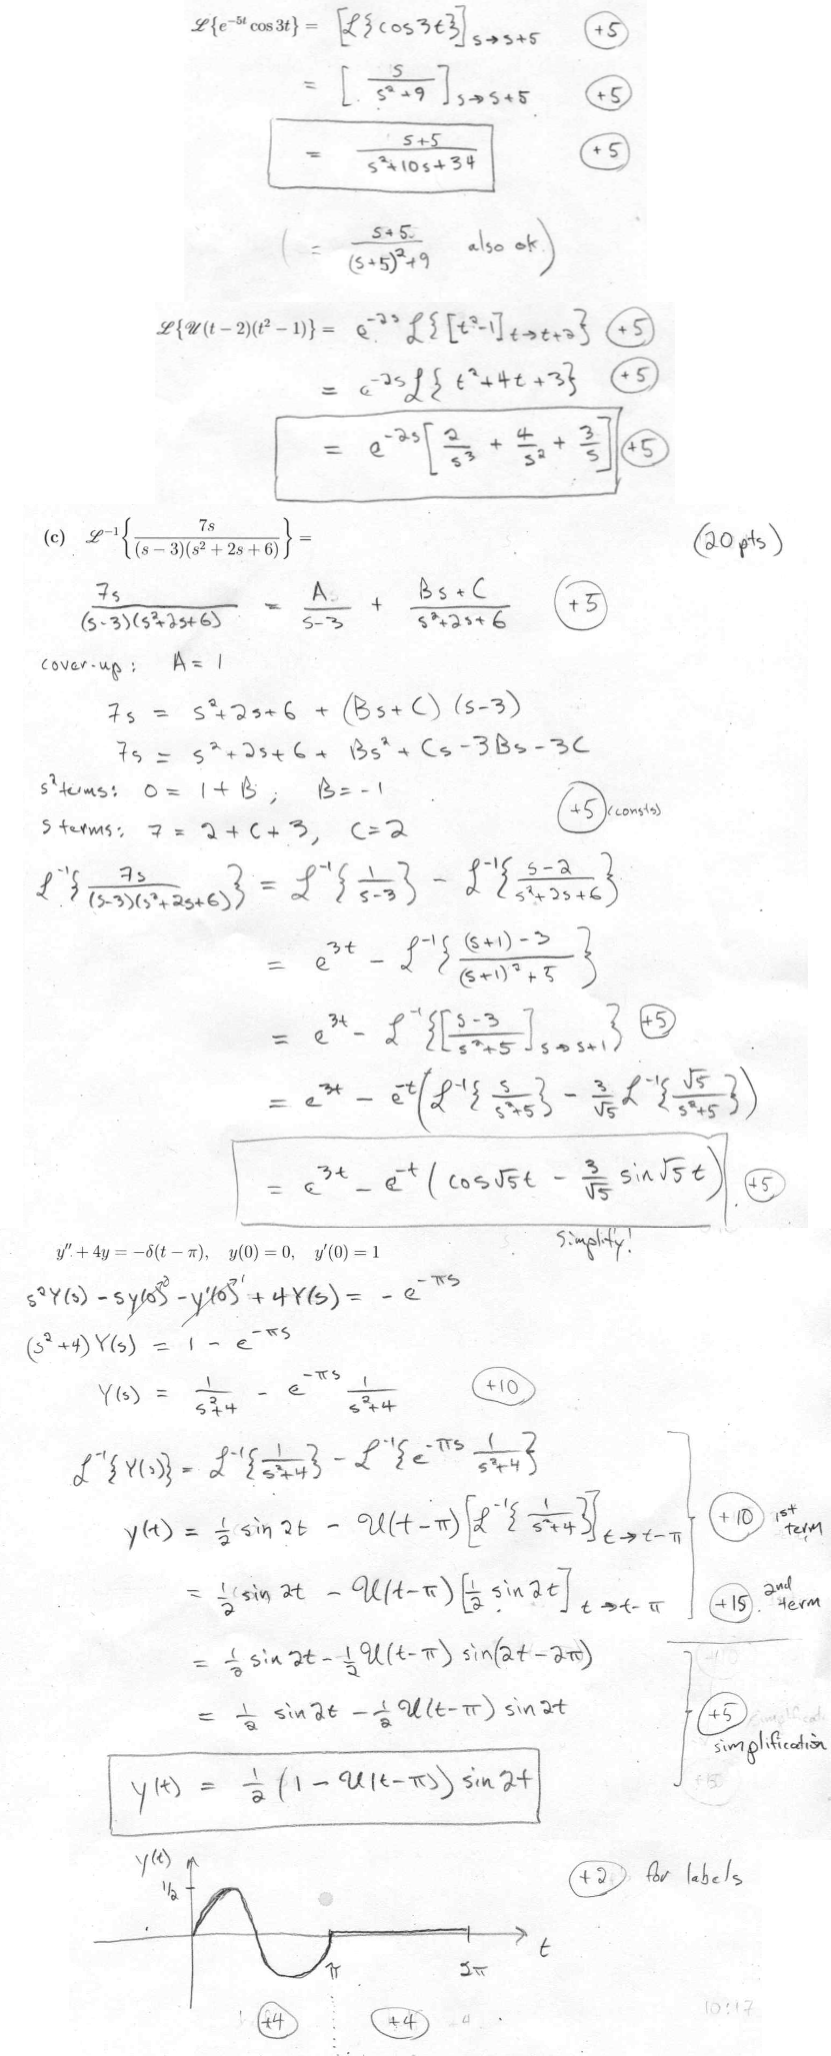 ℒ{e^{-5t} cos 3t} = [ℒ{cos 3t}]_{s→s+5} (+5)
= [s/(s²+9)]_{s→s+5} (+5)
= (s+5)/(s²+10s+34) (+5)
( = (s+5)/((s+5)²+9) also ok.)
ℒ{𝒰(t − 2)(t² − 1)} = e^{-2s} ℒ{[t²-1]_{t→t+2}} (+5)
= e^{-2s} ℒ{t²+4t+3} (+5)
= e^{-2s} [2/s³ + 4/s² + 3/s] (+5)
(c) ℒ^{-1}{7s/((s − 3)(s² + 2s + 6))} = (20 pts)
7s/((s-3)(s²+2s+6)) = A/(s-3) + (Bs+C)/(s²+2s+6) (+5)
cover-up: A = 1
7s = s²+2s+6 + (Bs+C)(s-3)
7s = s²+2s+6 + Bs² + Cs - 3Bs - 3C
s² terms: 0 = 1+B; B = -1
(+5) (consts)
s terms: 7 = 2+C+3, C=2
ℒ^{-1}{7s/((s-3)(s²+2s+6))} = ℒ^{-1}{1/(s-3)} - ℒ^{-1}{(s-2)/(s²+2s+6)}
= e^{3t} - ℒ^{-1}{((s+1)-3)/((s+1)²+5)}
= e^{3t} - ℒ^{-1}{[(s-3)/(s²+5)]_{s→s+1}} (+5)
= e^{3t} - e^{-t}(ℒ^{-1}{s/(s²+5)} - 3/√5 ℒ^{-1}{√5/(s²+5)})
= e^{3t} - e^{-t}(cos √5t - 3/√5 sin √5t) (+5)
simplify!
y″ + 4y = −δ(t − π), y(0) = 0, y′(0) = 1
s²Y(s) - sy(0)^{→0} - y'(0)^{→1} + 4Y(s) = -e^{-πs}
(s²+4)Y(s) = 1 - e^{-πs}
Y(s) = 1/(s²+4) - e^{-πs} 1/(s²+4) (+10)
ℒ^{-1}{Y(s)} = ℒ^{-1}{1/(s²+4)} - ℒ^{-1}{e^{-πs} 1/(s²+4)}
y(t) = ½ sin 2t - 𝒰(t-π)[ℒ^{-1}{1/(s²+4)}]_{t→t-π} (+10) 1st term
= ½ sin 2t - 𝒰(t-π)[½ sin 2t]_{t→t-π} (+15) 2nd term
= ½ sin 2t - ½ 𝒰(t-π) sin(2t-2π)
= ½ sin 2t - ½ 𝒰(t-π) sin 2t (+5) simplification
y(t) = ½ (1 - 𝒰(t-π)) sin 2t
y(t)
1/2
(+2) for labels
t
π 2π
(+4) (+4)
10:17